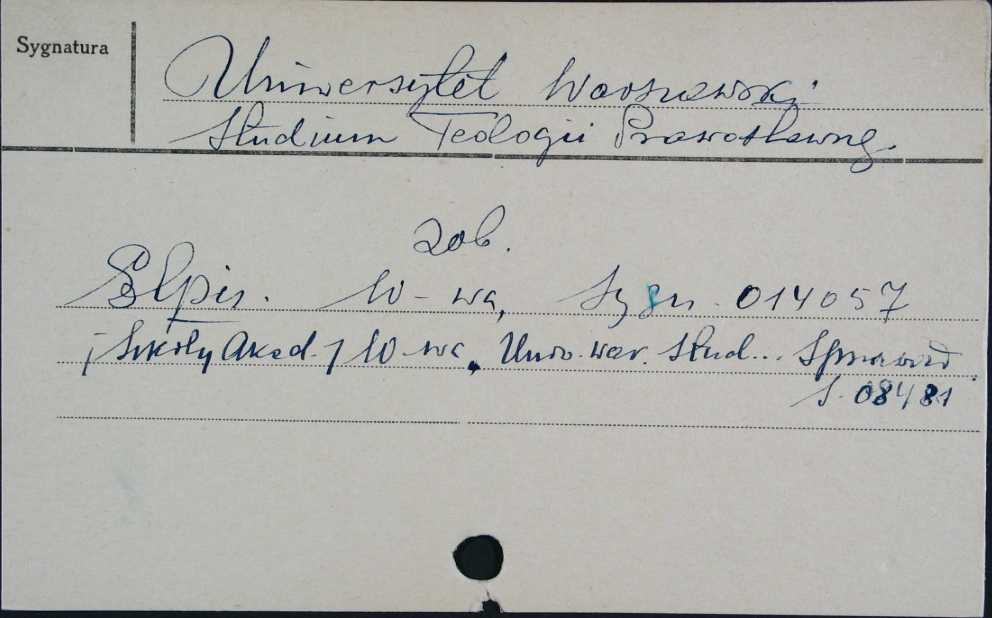 Sygnatura
Uniwersytet Warszawski
Studium Teologii Prawosławnej.
zob.
Elpis. W-wa, Sygn. 014057
[Szkoły Akad.] W-wa, Uniw. war. Stud... Sprawozd.
S. 08481